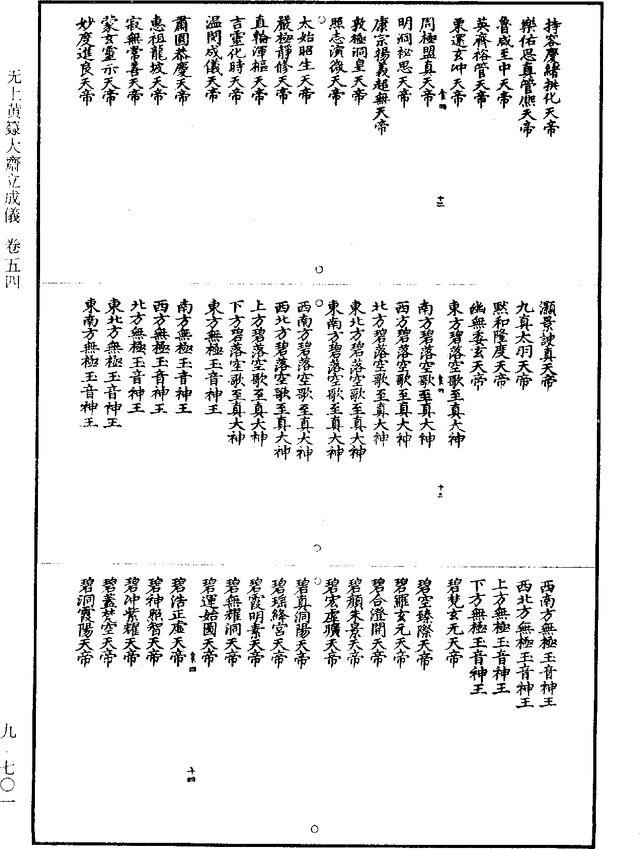 持容慶緒拱化天帝
樂佑思真管僊天帝
魯威至中天帝
英齊裕管天帝
東運玄冲天帝
周極盟真天帝
明洞祕思天帝
康宗揚義超無天帝
敦極洞皇天帝
照志演微天帝
太始昭生天帝
嚴極靜修天帝
真輪渾樞天帝
言靈化時天帝
溫閔成儀天帝
肅圓恭慶天帝
惠祖龍坡天帝
寂無常善天帝
蒙女靈示天帝
妙度進良天帝
十二
灝景諌真天帝
九真太羽天帝
默和隆度天帝
幽無委玄天帝
東方碧落空歌至真大神
南方碧落空歌至真大神
西方碧落空歌至真大神
北方碧落空歌至真大神
東北方碧落空歌至真大神
東南方碧落空歌至真大神
西南方碧落空歌至真大神
西北方碧落空歌至真大神
上方碧落空歌至真大神
下方碧落空歌至真大神
東方無極玉音神王
南方無極玉音神王
西方無極玉音神王
北方無極玉音神王
東北方無極玉音神王
東南方無極玉音神王
十三
西南方無極玉音神王
西北方無極玉音神王
上方無極玉音神王
下方無極玉音神王
碧梵玄元天帝
碧空臻際天帝
碧羅玄元天帝
碧合澄開天帝
碧顏朱景天帝
碧宏虛曠天帝
碧真洞陽天帝
碧瑤絳宮天帝
碧霞明素天帝
碧無耀洞天帝
碧運始圖天帝
碧浩正虛天帝
碧神照智天帝
碧冲紫耀天帝
碧蓋梵空天帝
碧洞霞陽天帝
十四
无上黄籙大齋立成儀 卷五四
九·七〇一